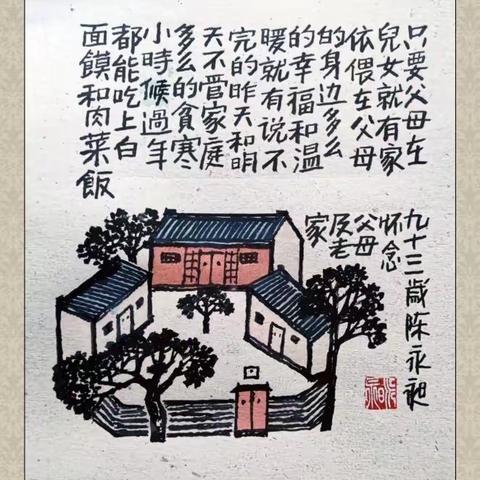 只要父母在
兒女就有家
依偎在父母
的身边多么
的幸福和温
暖就有说不
完的昨天和明
天不管家庭
多么的貧寒
小時候過年
都能吃上白
面饃和肉菜飯
九十三歲陈永
怀念
父母
及老
家